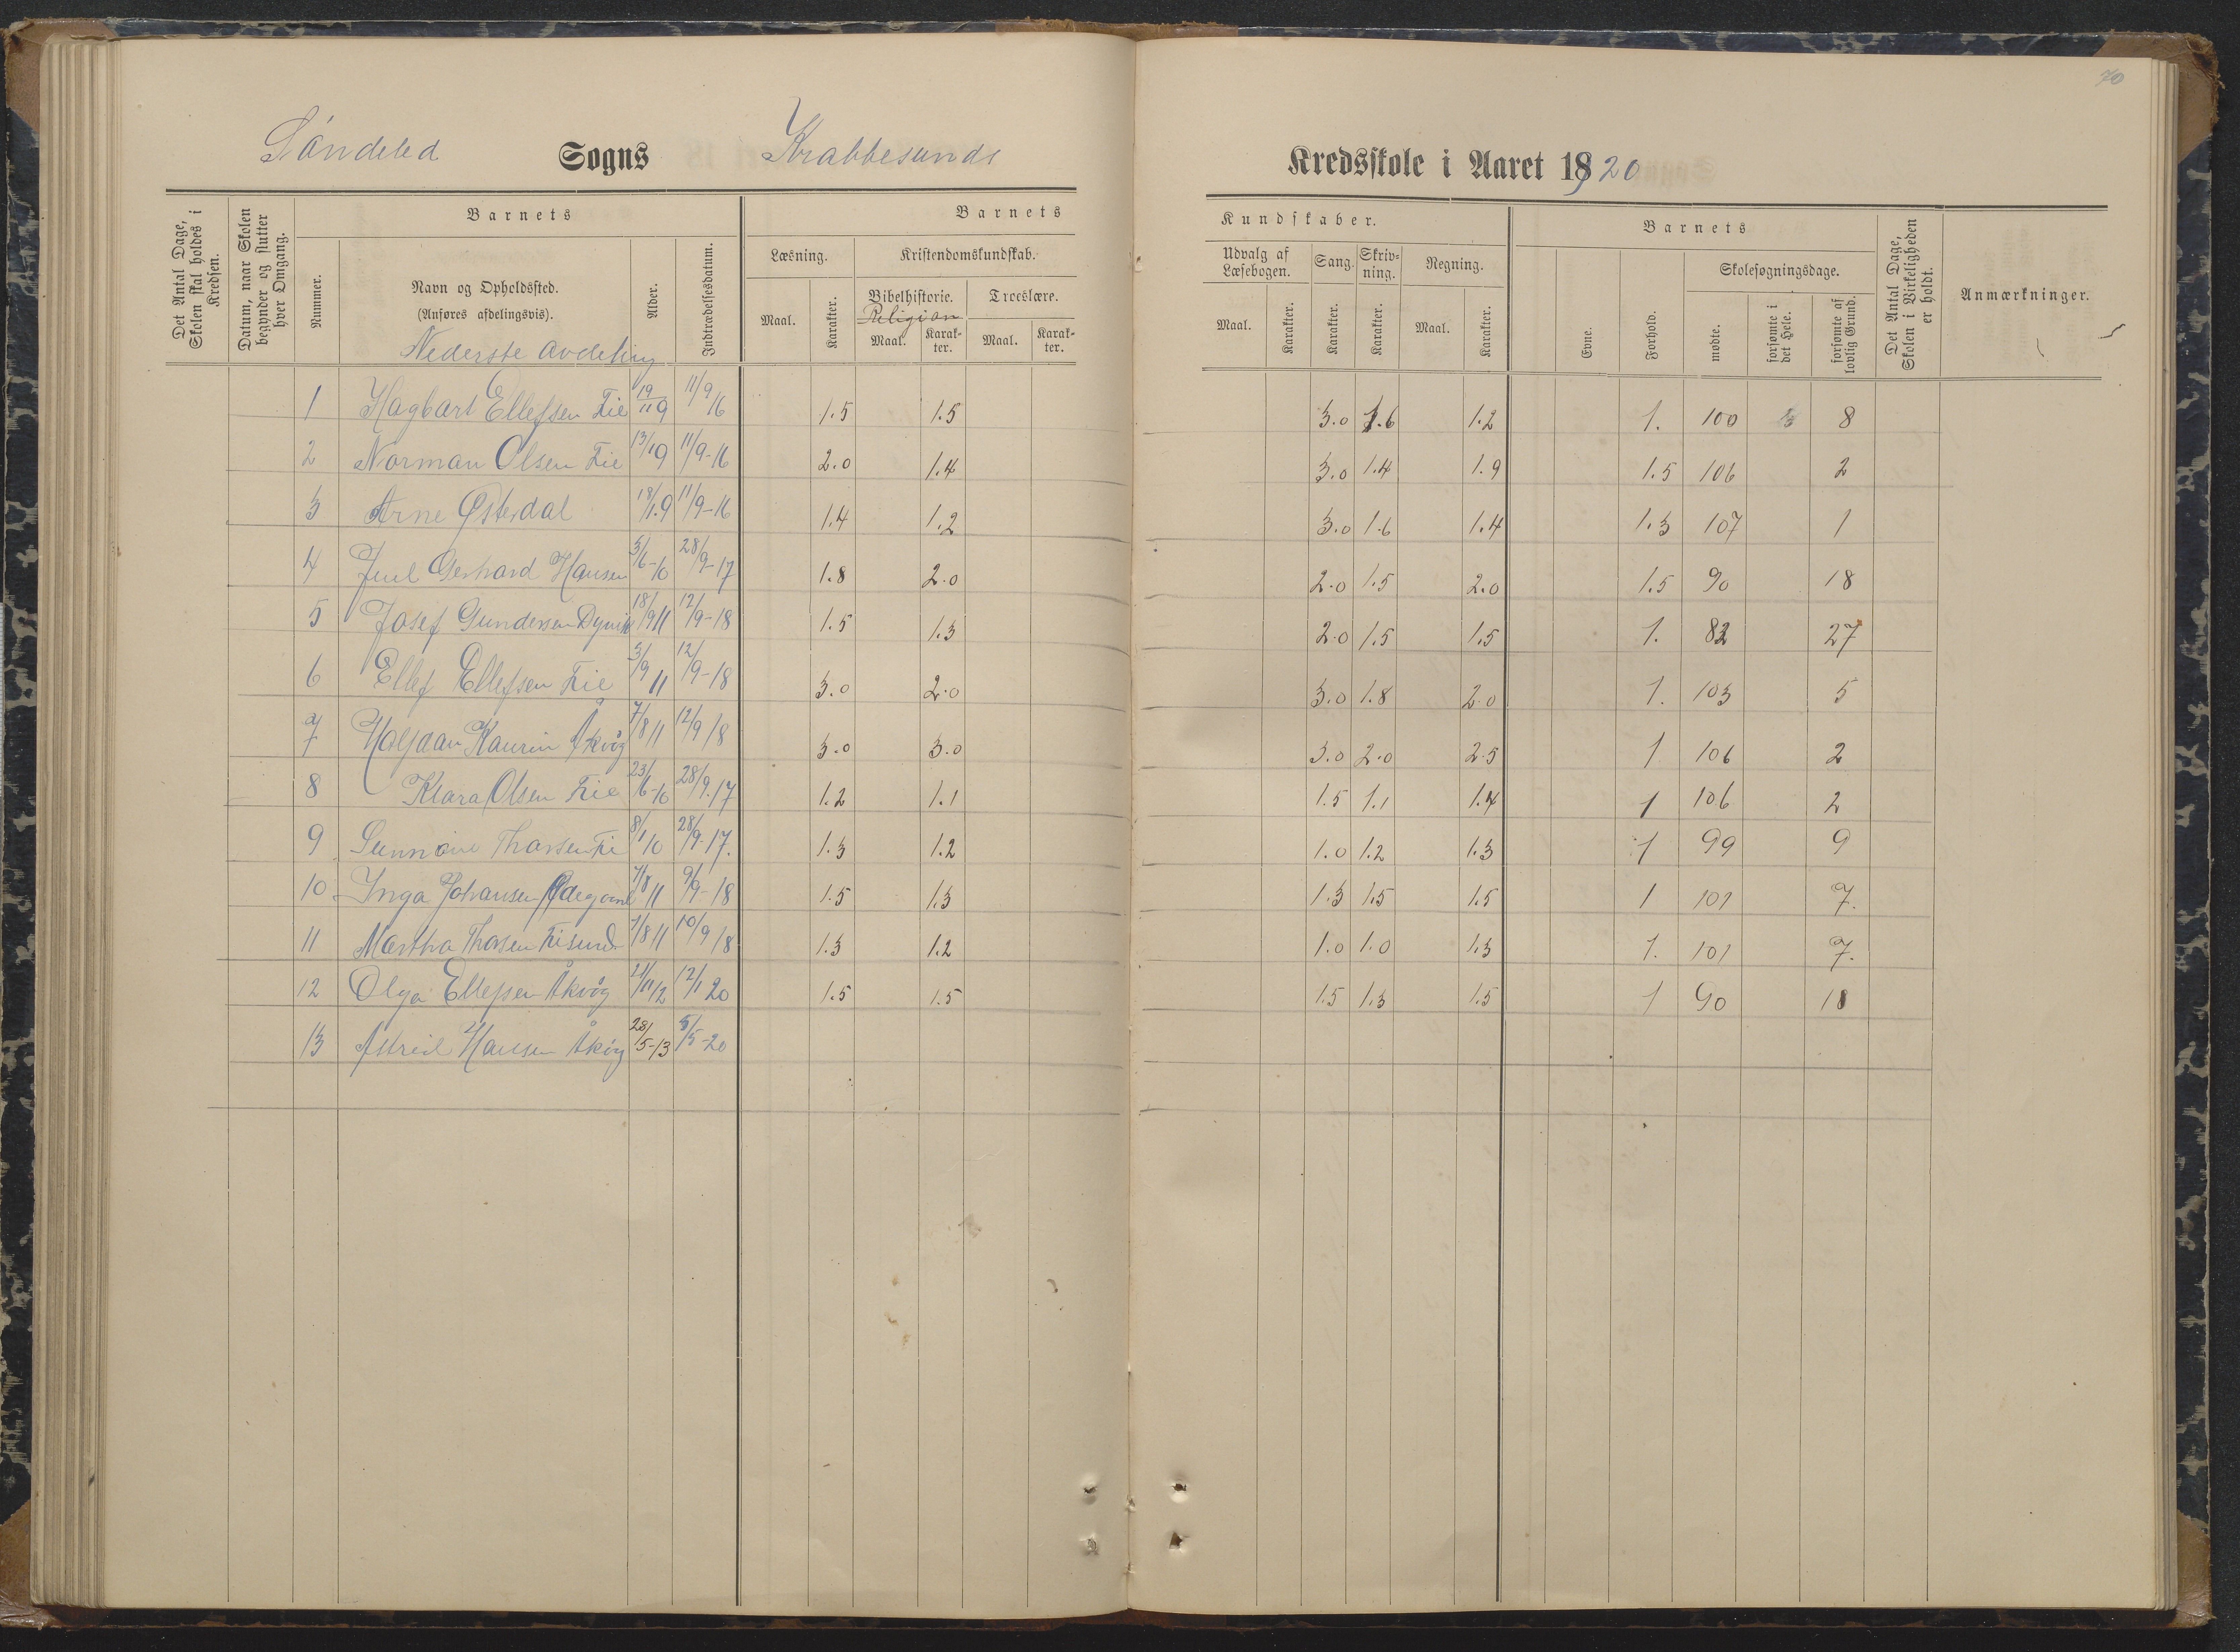 70
Søndeled Sogns Krabbesunds Kredsskole i Aaret 1920
Det Antal Dage, Skolen skal holdes i Kredsen.
Datum, naar Skolen begynder og slutter hver Omgang.
Barnets
Nummer.
Navn og Opholdssted.
(Anføres afdelingsvis).
Nederste avdeling
Alder.
Indtrædelsesdatum.
Barnets
Kundskaber.
Læsning.
Maal.
Karakter.
Kristendomskundskab.
Bibelhistorie.
Religion
Maal.
Karakter.
Troeslære.
Maal.
Karakter.
Udvalg af Læsebogen.
Maal.
Karakter.
Sang.
Karakter.
Skrivning.
Karakter.
Regning.
Maal.
Karakter.
Barnets
Evne.
Forhold.
Skolesøgningsdage.
mødte.
forsømte i det Hele.
forsømte af lovlig Grund.
Det Antal Dage, Skolen i Virkeligheden er holdt.
Anmærkninger.
1 Hagbart Ellefsen Lie 19/11 9 11/9 16 1.5 1.5 3.0 1.6 1.2 1. 100 8
2 Norman Olsen Lie 13/1 9 11/9-16 2.0 1.4 3.0 1.4 1.9 1.5 106 2
3 Arne Østerdal 18/1.9 11/9-16 1.4 1.2 3.0 1.6 1.4 1.3 107 1
4 Juul Gerhard Hansen 5/6-10 28/9-17 1.8 2.0 2.0 1.5 2.0 1.5 90 18
5 Josef Gundersen 18/9 11 12/9-18 1.5 1.3 2.0 1.5 1.5 1. 82 27
6 Ellef Ellefsen Lie 3/9 11 12/9-18 3.0 2.0 3.0 1.8 2.0 1. 103 5
7 Halfdan Kaurin Åkvåg 7/8 11 12/9 18 3.0 3.0 3.0 2.0 2.5 1 106 2
8 Klara Olsen Lie 23/6-10 28/9.17 1.2 1.1 1.5 1.1 1.4 1 106 2
9 Sunnøve Thorsen Lie 8/1 10 28/9-17. 1.3 1.2 1.0 1.2 1.3 1 99 9
10 Inga Johansen Ødegaard 7/8 11 9/9-18 1.5 1.3 1.3 1.5 1.5 1 101 7.
11 Martha Thorsen 1/8 11 10/9 18 1.3 1.2 1.0 1.0 1.3 1. 101 7.
12 Olga Ellefsen Åkvåg 21/11 12 12/1 20 1.5 1.5 1.5 1.3 1.5 1 90 18
13 Astrid Hansen Åkvåg 28/5-13 5/5-20